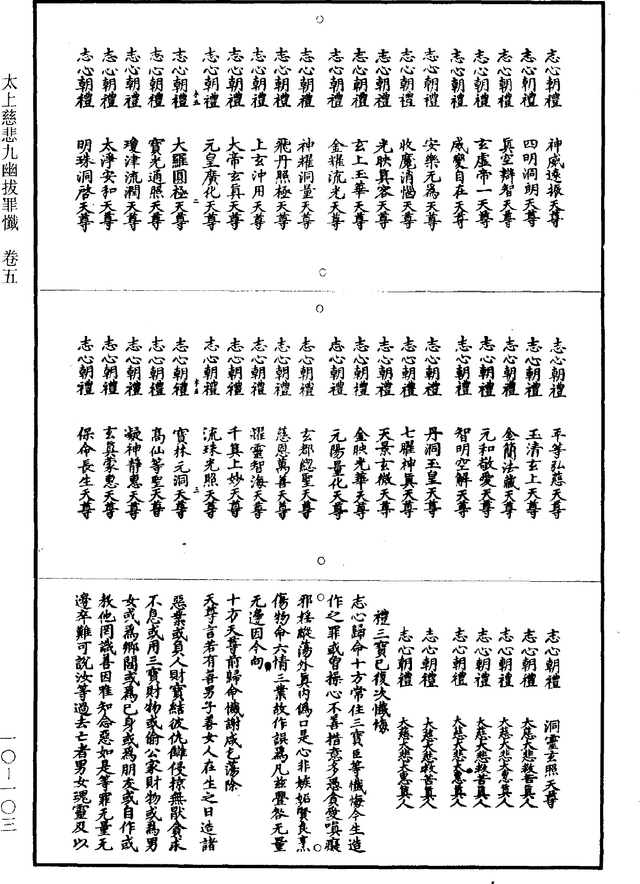 太上慈悲九幽拔罪懺　卷五
志心朝禮　神威遠振天尊
志心朝禮　四明洞朗天尊
志心朝禮　真空辯智天尊
志心朝禮　玄虛帝一天尊
志心朝禮　威變自在天尊
志心朝禮　安樂元為天尊
志心朝禮　收魔消惱天尊
志心朝禮　光映真容天尊
志心朝禮　玄上玉華天尊
志心朝禮　金耀流光天尊
志心朝禮　神耀洞量天尊
志心朝禮　飛丹照極天尊
志心朝禮　上玄沖用天尊
志心朝禮　大帝玄真天尊
志心朝禮　元皇廣化天尊
志心朝禮　大羅圓極天尊
志心朝禮　寶光通照天尊
志心朝禮　瓊津流潤天尊
志心朝禮　太淨安和天尊
志心朝禮　明珠洞啓天尊
志心朝禮　平等弘慈天尊
志心朝禮　玉清玄上天尊
志心朝禮　金簡法藏天尊
志心朝禮　元和敬愛天尊
志心朝禮　智明空解天尊
志心朝禮　丹洞玉皇天尊
志心朝禮　七耀神真天尊
志心朝禮　天景玄微天尊
志心朝禮　金映光華天尊
志心朝禮　元陽量化天尊
志心朝禮　玄都總聖天尊
志心朝禮　慈恩萬善天尊
志心朝禮　耀靈智海天尊
志心朝禮　千真上妙天尊
志心朝禮　流珠光照天尊
志心朝禮　寶林元洞天尊
志心朝禮　高仙等聖天尊
志心朝禮　凝神靜惠天尊
志心朝禮　玄真蒙惠天尊
志心朝禮　保命長生天尊
志心朝禮　洞靈玄照天尊
志心朝禮　大慈大悲救苦真人
志心朝禮　大慈大悲大惠真人
志心朝禮　大慈大悲救苦真人
志心朝禮　大慈大悲大惠真人
志心朝禮　大慈大悲救苦真人
志心朝禮　大慈大悲大惠真人
禮三寶已復次懺悔
志心歸命十方常住三寶臣等懺悔今生造
作之罪或曾操心不善措意多愚貪愛嗔癡
邪婬縱蕩外真內偽口是心非嫉妬賢良烹
傷物命六情三業故作誤為凡茲舋咎无量
无邊因今向
十方天尊前歸命懺謝咸乞蕩除
天尊言若有善男子善女人在生之日造諸
惡業或負人財寶結彼仇讎侵掠無厭貪求
不息或用三寶財物或偷公家財物或為男
女或為鄉閭或為己身或為朋友或自作或
教他罔識善因唯知念惡如是等罪无量无
邊卒難可說汝等過去亡者男女魂靈及以
一〇-一〇三